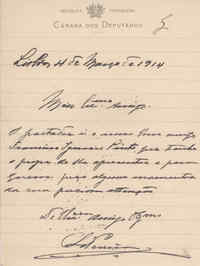 REPUBLICA PORTUGUESA
CAMARA DOS DEPUTADOS
Lisboa 4 de Março de 1914
Meu Exmo amigo
O portador é o nosso bom amigo
Francisco Ignacio Pinto que tenho
o prazer de lhe apresentar e para
quem peço alguns momentos
da sua preciosa attenção
De V. Ex
amigo